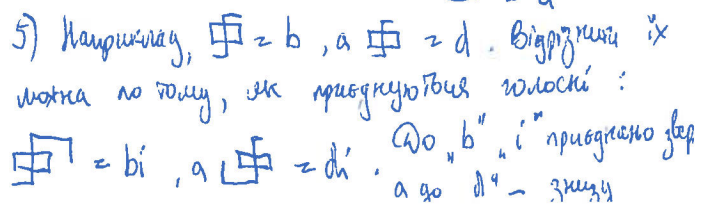 5) Наприклад, = b, а = d. Відрізнити їх
можна по тому, як приєднуються голосні:
= bi, а = di. До „b" „i" приєднано звер
а до „d" – знизу